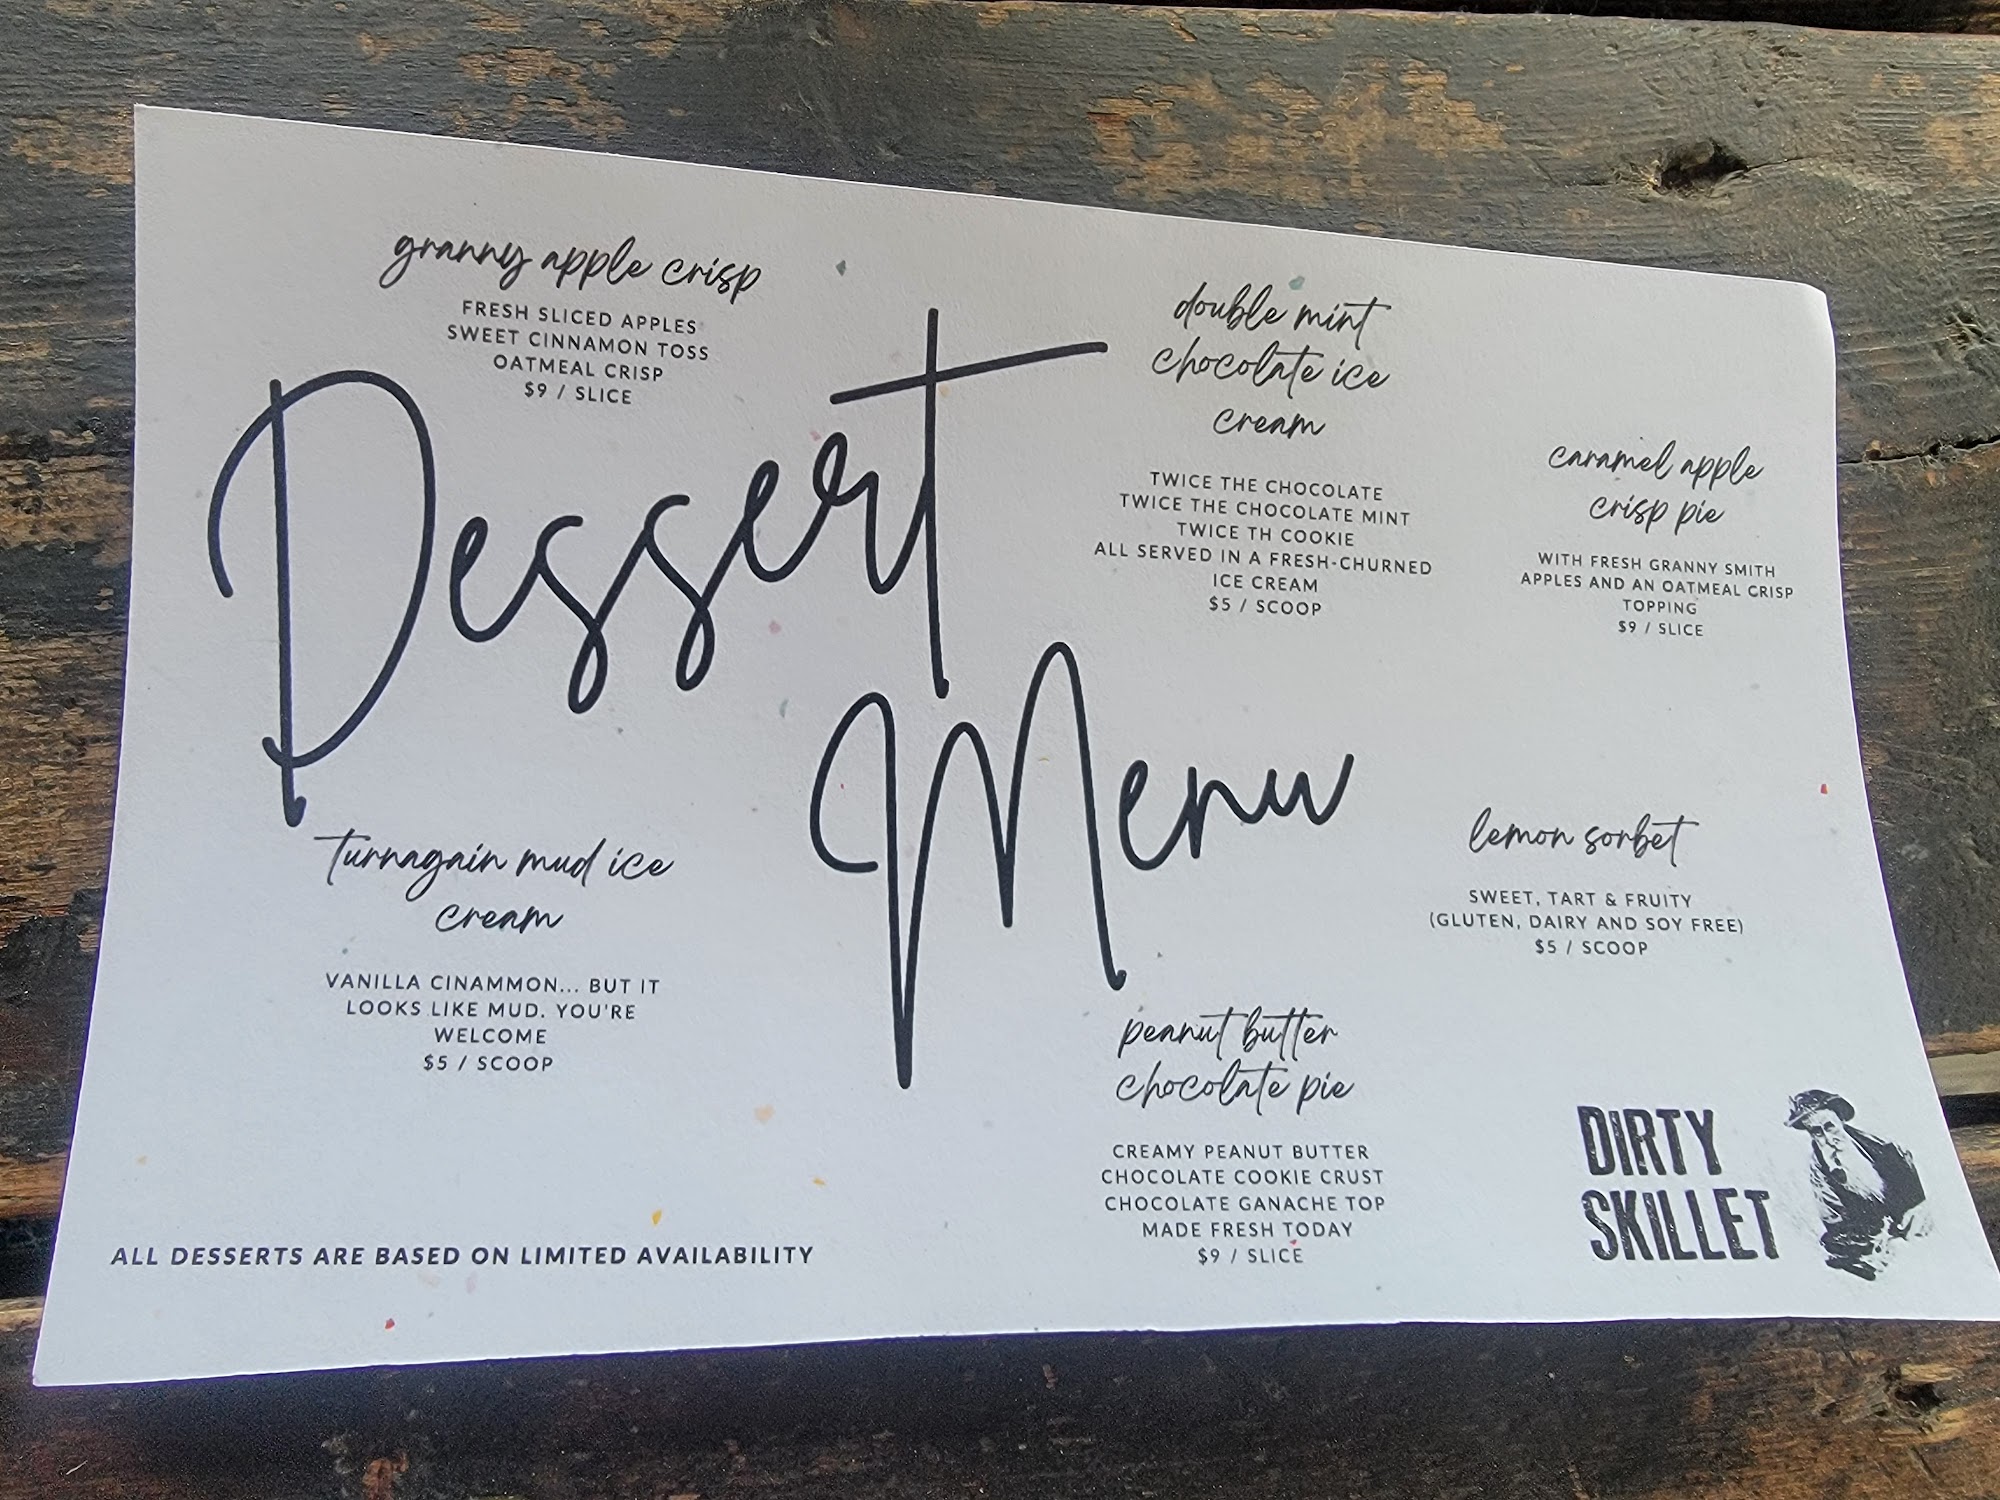 granny apple crisp
FRESH SLICED APPLES
SWEET CINNAMON TOSS
OATMEAL CRISP
$9 / SLICE
Dessert
Menu
double mint
chocolate ice
cream
TWICE THE CHOCOLATE
TWICE THE CHOCOLATE MINT
TWICE TH COOKIE
ALL SERVED IN A FRESH-CHURNED
ICE CREAM
$5 / SCOOP
caramel apple
crisp pie
WITH FRESH GRANNY SMITH
APPLES AND AN OATMEAL CRISP
TOPPING
$9 / SLICE
turnagain mud ice
cream
VANILLA CINAMMON... BUT IT
LOOKS LIKE MUD. YOU'RE
WELCOME
$5 / SCOOP
lemon sorbet
SWEET, TART & FRUITY
(GLUTEN, DAIRY AND SOY FREE)
$5 / SCOOP
peanut butter
chocolate pie
CREAMY PEANUT BUTTER
CHOCOLATE COOKIE CRUST
CHOCOLATE GANACHE TOP
MADE FRESH TODAY
$9 / SLICE
ALL DESSERTS ARE BASED ON LIMITED AVAILABILITY
DIRTY
SKILLET